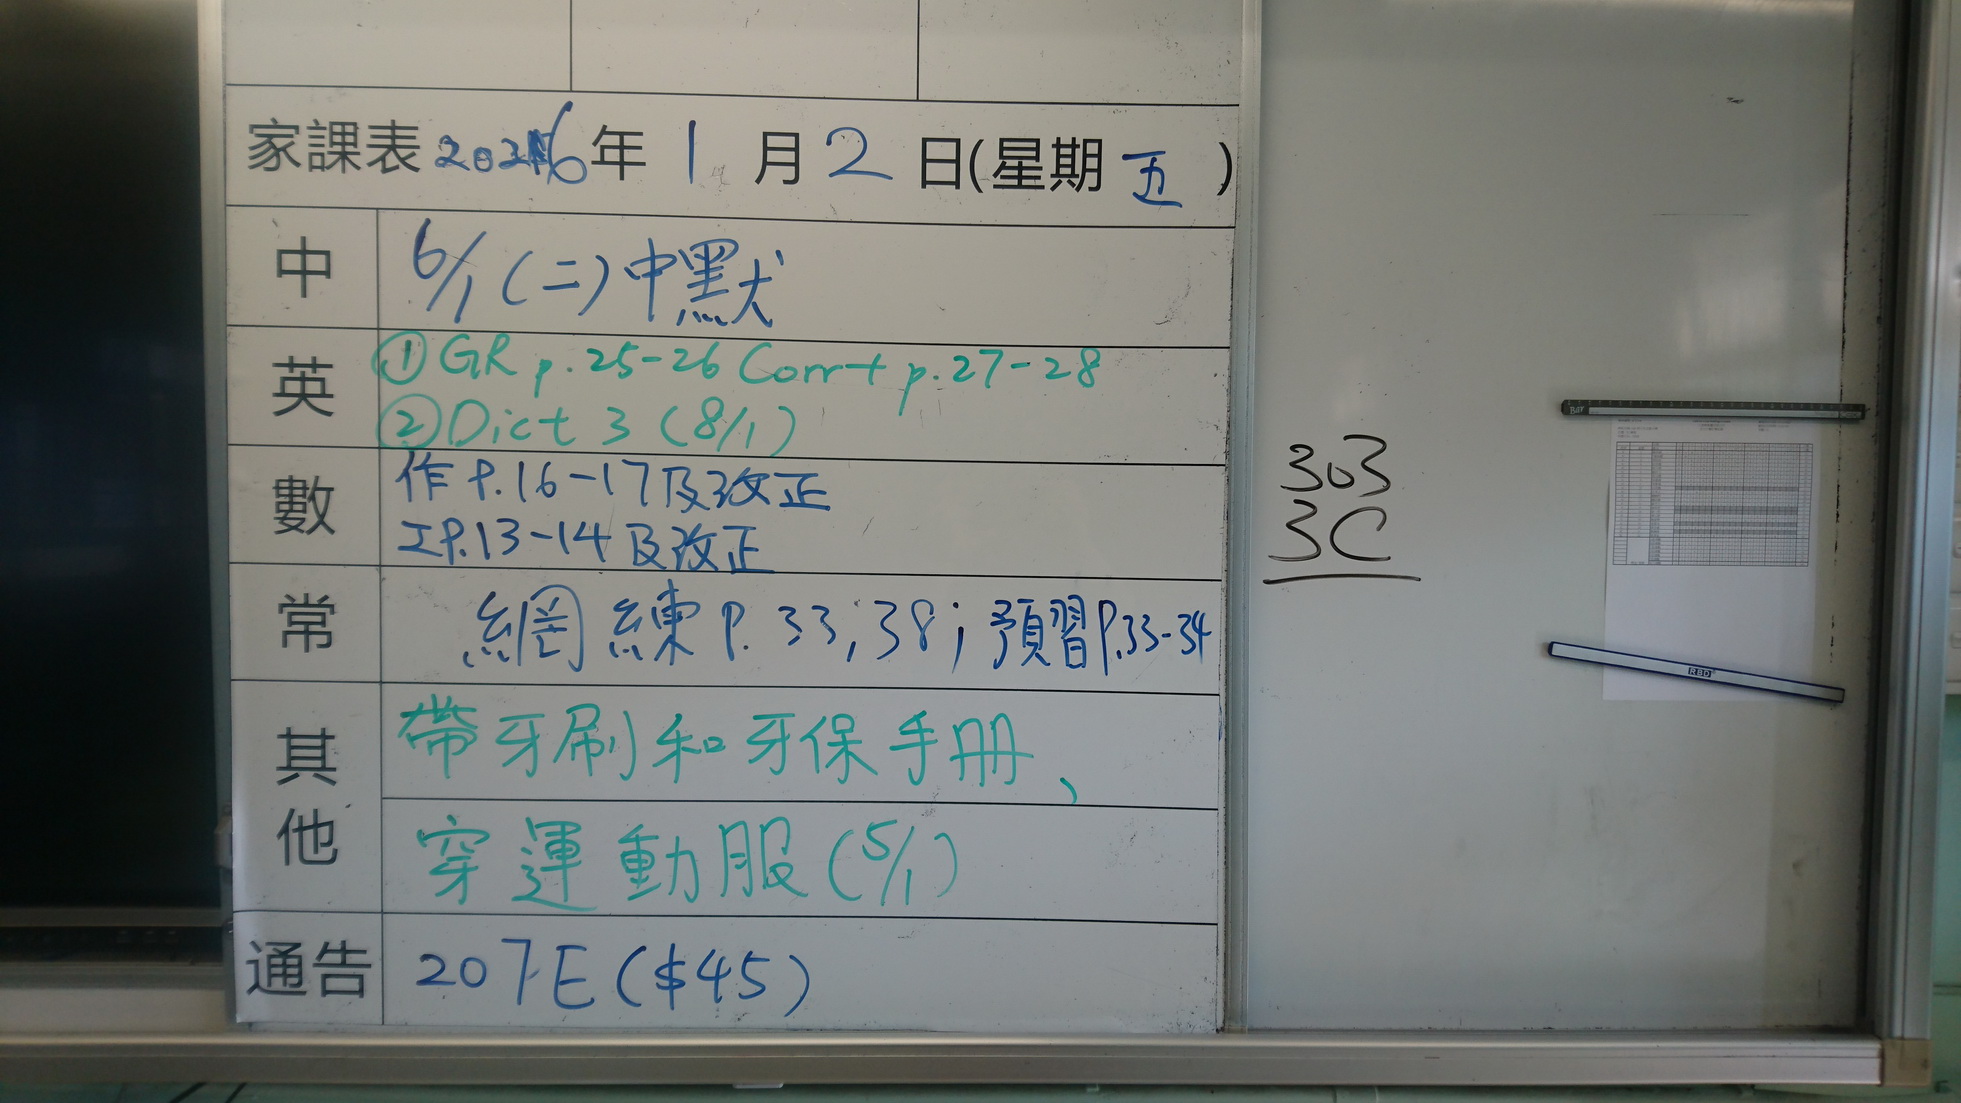 家課表 2026年 1 月 2 日(星期 五 )
中 6/1 (二) 中默
英 ① GR p.25-26 Corr+ p.27-28
② Dict 3 (8/1)
數 作 P.16-17及改正
工P.13-14及改正
常 網練 P. 33, 38; 預習P.33-34
其他 帶牙刷和牙保手冊、
穿運動服 (5/1)
通告 207E ($45)
303
3C
RBD